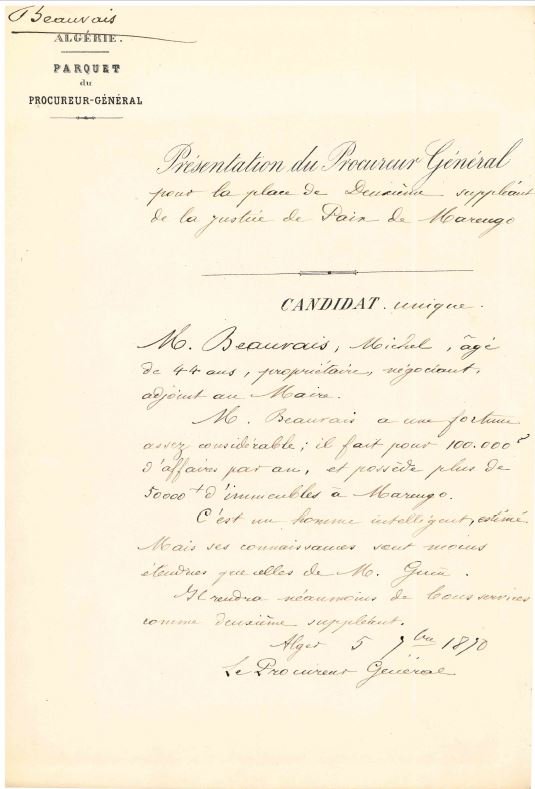 Beauvais
ALGÉRIE.
PARQUET
du
PROCUREUR-GÉNÉRAL
Présentation du Procureur Général
pour la place de Deuxième suppléant
de la justice de Paix de Marengo
CANDIDAT unique.
M. Beauvais, Michel, âgé
de 44 ans, propriétaire, négociant,
adjoint au Maire.
M. Beauvais a une fortune
assez considérable; il fait pour 100.000 f
d'affaires par an, et possède plus de
50000 f d'immeubles à Marengo.
C'est un homme intelligent, estimé.
Mais ses connaissances sont moins
étendues que celles de M.
Il rendra néanmoins de bons services
comme deuxième suppléant.
Alger 5 7bre 1870
Le Procureur Général